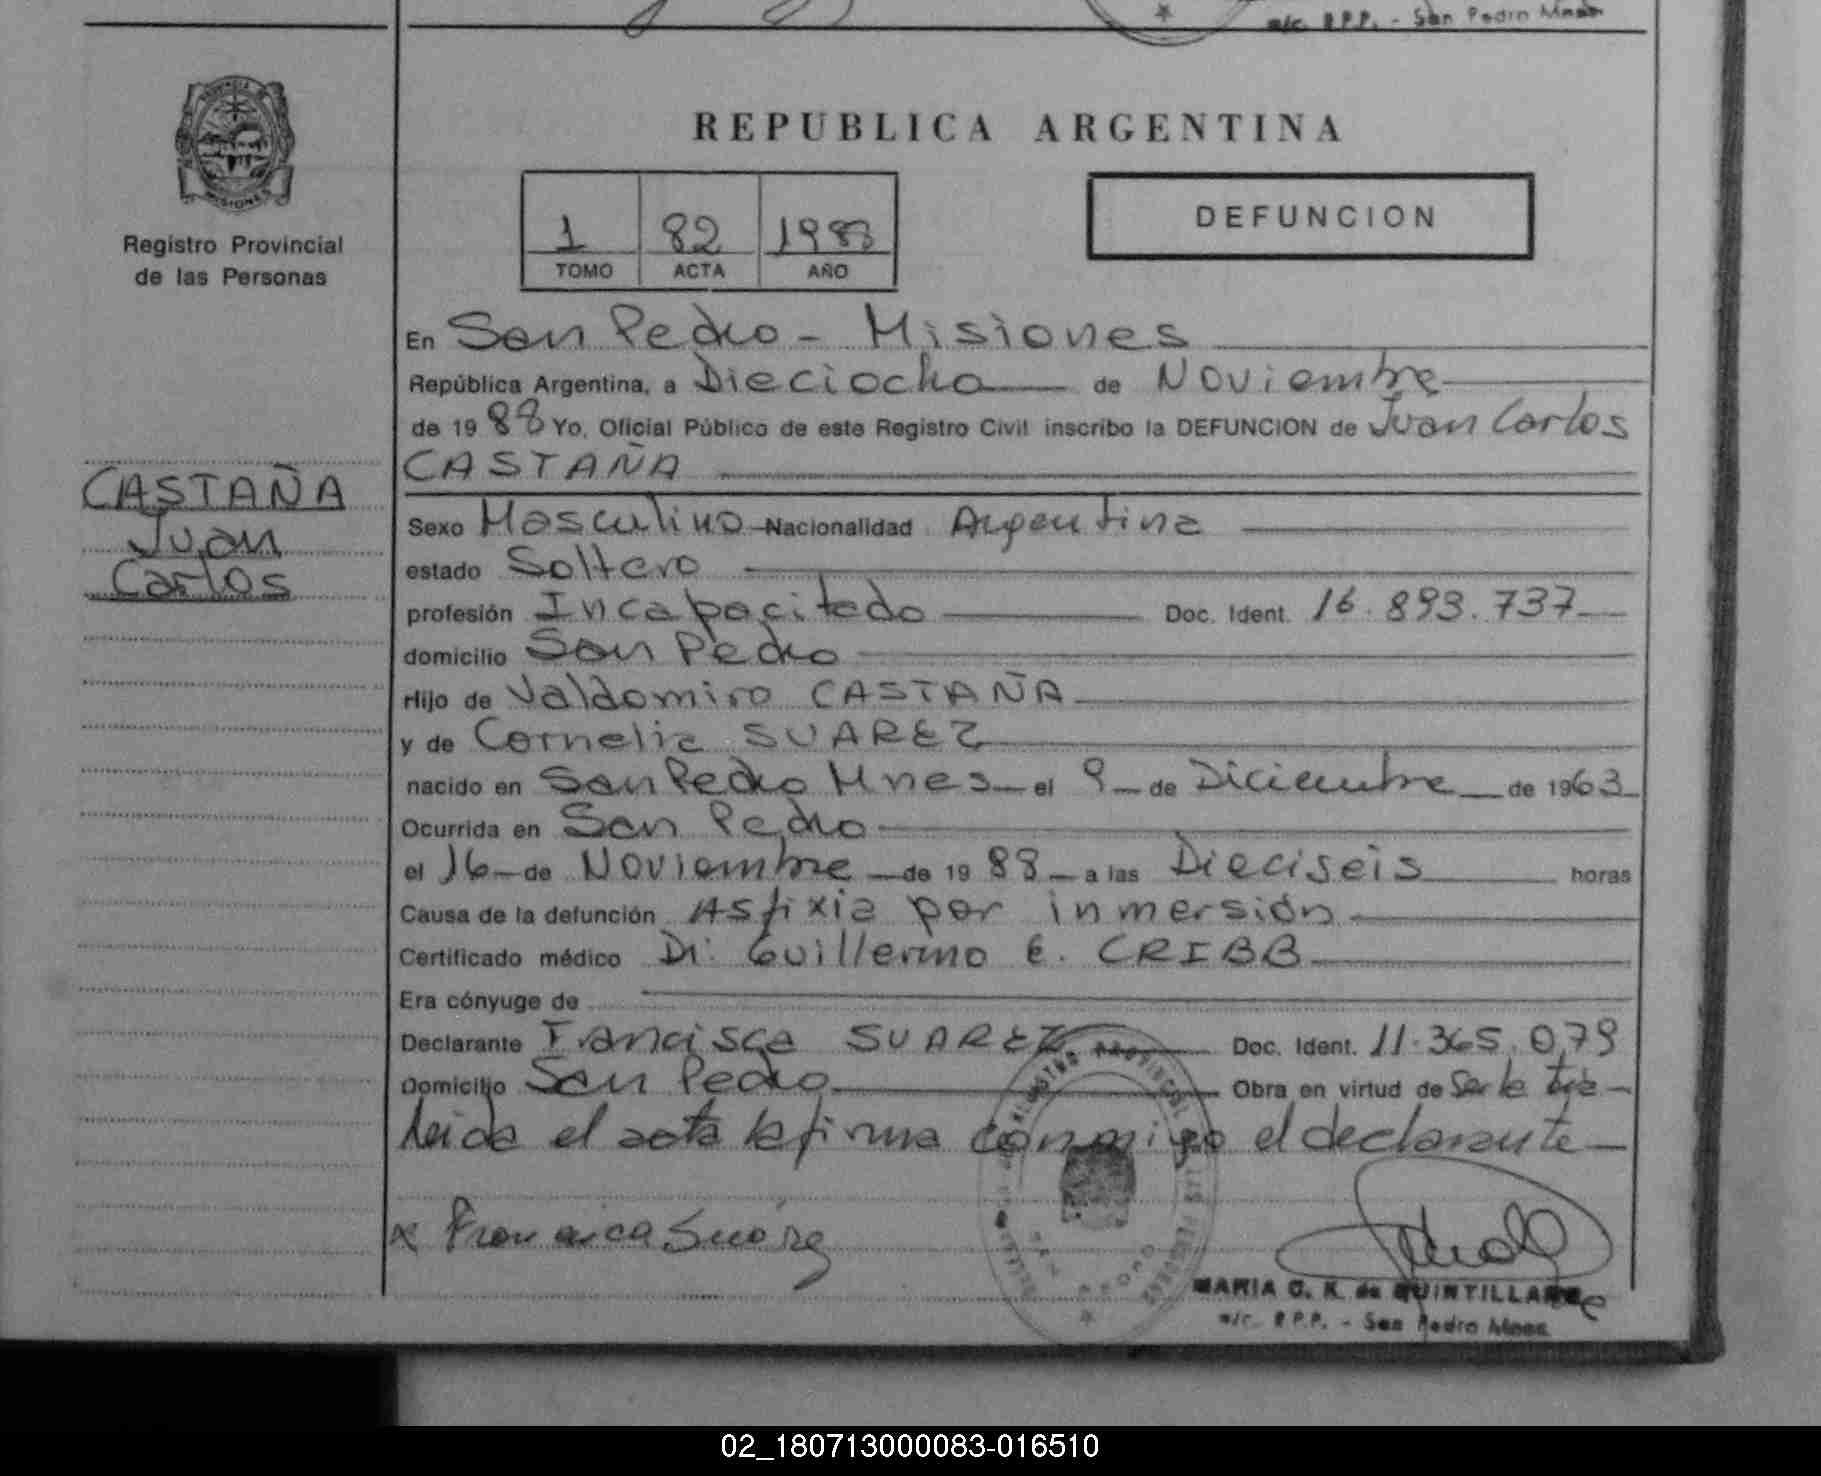 a/c. R.P.P. - San Pedro Mnes
PROVINCIA DE
MISIONES
Registro Provincial
de las Personas
REPUBLICA ARGENTINA
1 82 1988
TOMO ACTA AÑO
DEFUNCION
En San Pedro - Misiones
República Argentina, a Dieciocho de Noviembre
de 1988 Yo, Oficial Público de este Registro Civil inscribo la DEFUNCION de Juan Carlos
CASTAÑA
CASTAÑA
Juan
Carlos
Sexo Masculino Nacionalidad Argentina
estado Soltero
profesión Incapacitado Doc. Ident. 16.893.737
domicilio San Pedro
Hijo de Valdomiro CASTAÑA
y de Cornelia SUAREZ
nacido en San Pedro Mnes el 9 de Diciembre de 1963
Ocurrida en San Pedro
el 16 de Noviembre de 1988 a las Dieciseis horas
Causa de la defunción Asfixia por inmersión
Certificado médico Dr. Guillermo E. CRIBB
Era cónyuge de
Declarante Francisca SUAREZ Doc. Ident. 11.365.079
Domicilio San Pedro Obra en virtud de Ser la tia
Leida el acta la firma conmigo el declarante
x Francisca Suárez
REGISTRO PROVINCIAL DE LAS PERSONAS
SAN PEDRO
MARIA G. K. de QUINTILLAN
a/c. R.P.P. - San Pedro Mnes
02_180713000083-016510